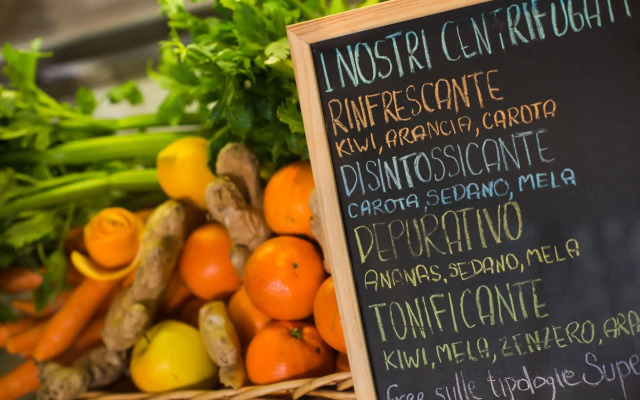 I NOSTRI CENTRIFUGATI
RINFRESCANTE
KIWI, ARANCIA, CAROTA
DISINTOSSICANTE
CAROTA, SEDANO, MELA
DEPURATIVO
ANANAS, SEDANO, MELA
TONIFICANTE
KIWI, MELA, ZENZERO, ARA
sulle tipologie Supe